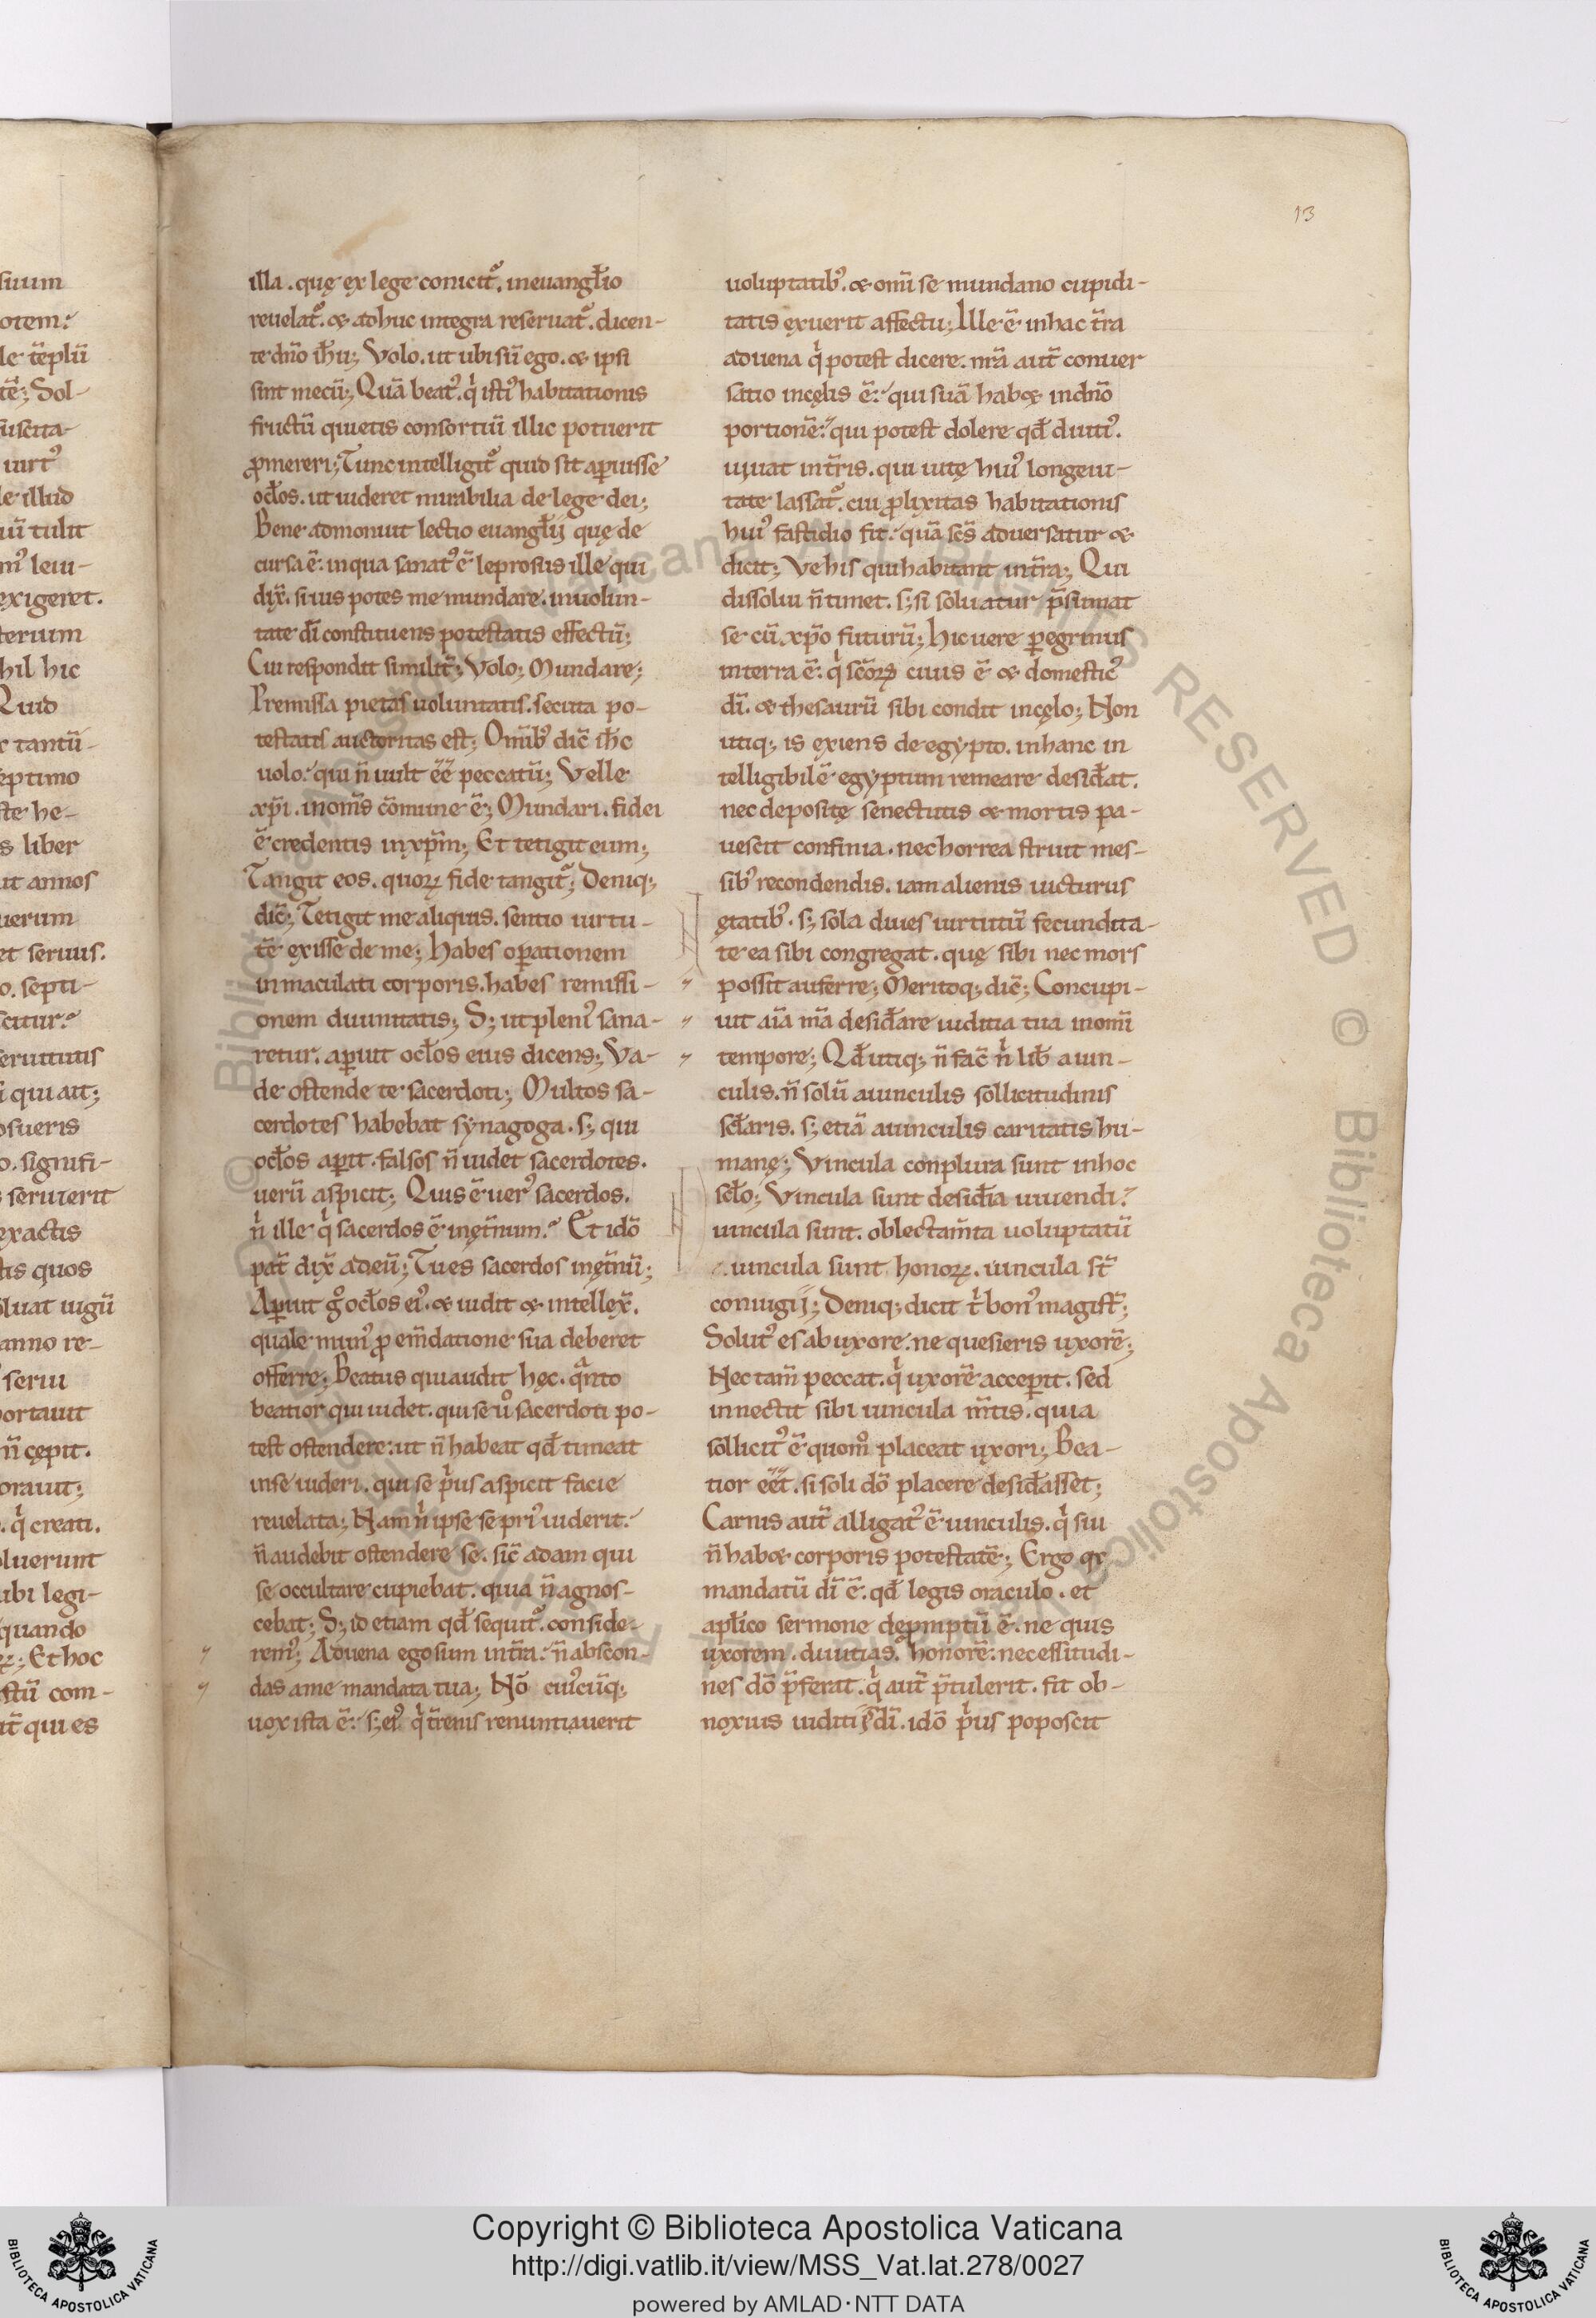 13
illa. quę ex lege conicit᷑. ineuanglio
reuelat᷑. & adhuc integra reseruat᷑. dicen-
te dno ihu; Volo. ut ubi sū ego. & ipsi
sint mecū; Quā beat᷒. q isti᷒ habitationis
fructū quietis consortiū illic potuerit
ꝓmereri; Tunc intelligit᷑ quid sit aꝑuisse
oclos. ut uideret mirabilia de lege dei;
Bene admonuit lectio euanglij quę de
cursa ē. inqua sanat᷒ ē leprosus ille qui
dix̄. si uis potes me mundare. inuolun-
tate dī constituens potestatis effectū;
Cui respondit similit̄; Volo; Mundare;
Premissa pietas uoluntatis. secuta po-
testatis auctoritas est; Omib᷒ dic̄ ihc
uolo. qui n̄ uult ēē peccatū; Velle
xp̄i. inomīs cōmune ē; Mundari. fidei
ē credentis inxp̄m; Et tetigit eum;
Tangit eos. quoꝝ fide tangit᷑; Deniq;
dic̄; Tetigit me aliquis. sentio uirtu-
tē exisse de me; habes oꝑationem
inmaculati corporis. habes remissi-
onem diuinitatis; S; ut pleni᷒ sana-
retur. aꝑuit oclos eius dicens; Va-
de ostende te sacerdoti; Multos sa-
cerdotes habebat synagoga. s; qui
oclos aꝑit. falsos n̄ uidet sacerdotes.
uerū aspicit; Quis ē uer᷒ sacerdos.
n̄ ille q sacerdos ē inęt̄num. Et idō
pat̄ dix̄ adeū; Tu es sacerdos inęt̄nū;
Aꝑuit g oclos ei᷒. & uidit & intellex̄.
quale mun᷒ ꝓ em̄datione sua deberet
offerre; Beatus qui audit hęc. qnto
beatior qui uidet. qui se ů sacerdoti po-
test ostendere. ut n̄ habeat qđ timeat
inse uideri. qui se pus aspicit facie
reuelata; Nam n̄ ipse se pri᷒ uiderit.
n̄ audebit ostendere se. sic̄ adam qui
se occultare cupiebat. quia n̄ agnos-
cebat; S; id etiam qđ sequit᷑. conside-
rem᷒; Aduena ego sum int̄ra. n̄ abscon-
das ame mandata tua; Nō cui᷒cūq;
uox ista ē. s; ei᷒ q t̄renis renuntiauerit
uoluptatib᷒. & omī se mundano cupidi-
tatis exuerit affectu; Ille ē inhac t̄ra
aduena q potest dicere. nrā aut̄ conuer
satio incęlis ē. qui suā hab& indnō
portionē. qui potest dolere qđ diuti᷒.
uiuat int̄ris. qui uitę hui᷒ longeui-
tate lassat᷑. cui ꝓlixitas habitationis
hui᷒ fastidio fit. quā scs̄ aduersatur &
dicit; Ve his qui habitant int̄ra; Qui
dissolui n̄ timet. s; si soluatur p̄sumat
se cū xp̄o futurū; hic uere ꝑegrinus
interra ē. q scōꝝ ciuis ē & domestic᷒
dī. & thesaurū sibi condit incęlo; Non
utiq; is exiens de egypto. inhanc in
telligibilē egyptum remeare desiđat.
nec depositę senectutis & mortis pa-
uescit confinia. nec horrea struit mes-
sib᷒ recondendis. iam alienis uicturus
ętatib᷒. s; sola diues uirtutū fecundita-
te ea sibi congregat. quę sibi nec mors
possit auferre; Meritoq; dic̄; Concupi-
uit aīa mā desiđare iuditia tua inomī
tempore; Qđ utiq; n̄ fac̄ n̄ lib̄ a uin-
culis. n̄ solū auinculis sollicitudinis
sclaris. s; etiā auinculis caritatis hu-
manę; Vincula conplura sunt inhoc
sclo; Vincula sunt desiđia uiuendi.
uincula sunt. oblectam̄ta uoluptatū
uincula sunt honoꝝ. uincula st̄
coniugij; Deniq; dicit t bon᷒ magist̄;
Solut᷒ es abuxore. ne quesieris uxorē;
Nec tam̄ peccat. q uxorē acceꝑit. sed
innectit sibi uincula m̄tis. quia
sollicit᷒ ē quom̊ placeat uxori; Bea-
tior ēēt. si soli dō placere desiđasset;
Carnis aut̄ alligat᷒ ē uinculis. q sui
n̄ hab& corporis potestatē; Ergo qr
mandatū dī ē. qđ legis oraculo. et
aplico sermone dępmptū ē. ne quis
uxorem. diuitias. honorē. necessitudi-
nes dō p̄ferat. q aut̄ p̄tulerit. fit ob-
noxius iuditio dī. idō pus poposcit
Copyright © Biblioteca Apostolica Vaticana
http://digi.vatlib.it/view/MSS_Vat.lat.278/0027
powered by AMLAD·NTT DATA
BIBLIOTECA APOSTOLICA VATICANA
BIBLIOTECA APOSTOLICA VATICANA